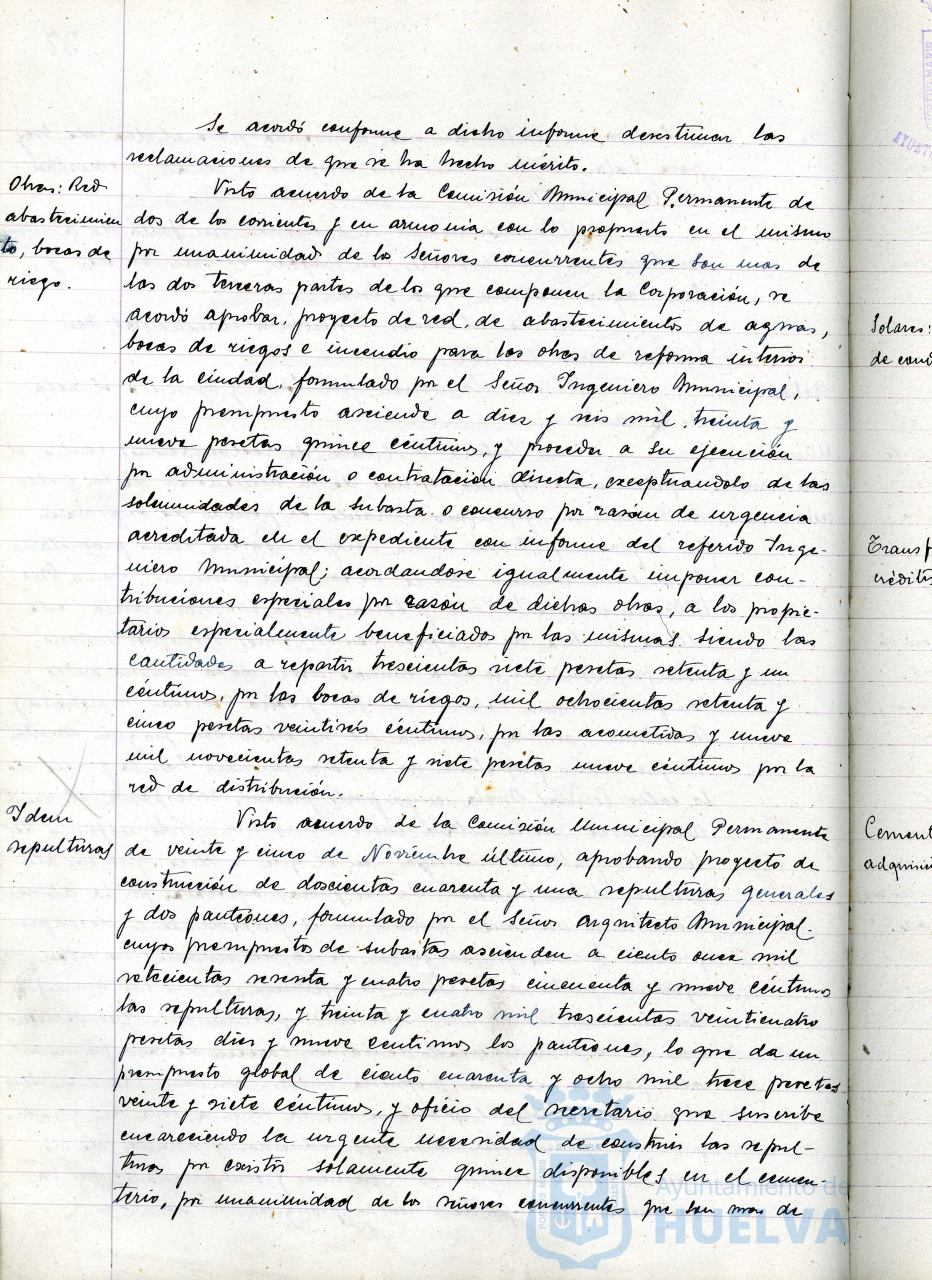 Se acordó conforme a dicho informe desestimar las
reclamaciones de que se ha hecho mérito.
Obras: Red
abastecimien
to, bocas de
riego.
Visto acuerdo de la Comisión Municipal Permanente de
dos de los corrientes y en armonia con lo propuesto en el mismo
por unanimidad de los Señores concurrentes que son mas de
las dos terceras partes de los que componen la Corporación, se
acordó aprobar, proyecto de red, de abastecimientos de aguas,
bocas de riegos e incendio para las obras de reforma interior
de la ciudad, formulado por el Señor Ingeniero Municipal,
cuyo presupuesto asciende a diez y seis mil, treinta y
nueve pesetas quince céntimos, y proceder a su ejecución
por administración o contratación directa, exceptuandolo de las
solemnidades de la subasta o concurso por razón de urgencia
acreditada en el expediente con informe del referido Inge-
niero Municipal; acordandose igualmente imponer con-
tribuciones especiales por razón de dichas obras, a los propie-
tarios especialmente beneficiados por las mismas siendo las
cantidades a repartir trescientas siete pesetas setenta y un
céntimos, por las bocas de riegos, mil ochocientas setenta y
cinco pesetas veintiseis céntimos, por las acometidas y nueve
mil novecientas setenta y siete pesetas nueve céntimos por la
red de distribución.
Idem
sepulturas
Visto acuerdo de la Comisión Municipal Permanente
de veinte y cinco de Noviembre último, aprobando proyecto de
construcción de doscientas cuarenta y una sepulturas generales
y dos panteones, formulado por el Señor Arquitecto Municipal.
cuyos presupuestos de subastas ascienden a ciento once mil
setecientas sesenta y cuatro pesetas cincuenta y nueve céntimos
las sepulturas, y treinta y cuatro mil trescientas veinticuatro
pesetas diez y nueve centimos los panteones, lo que da un
presupuesto global de ciento cuarenta y ocho mil trece pesetas
veinte y siete céntimos, y oficio del secretario que suscribe
encareciendo la urgente necesidad de construir las sepul-
turas por existir solamente quince disponibles en el cemen-
terio, por unanimidad de los señores concurrentes que son mas de
Solares:
Ayuntamiento de
HUELVA